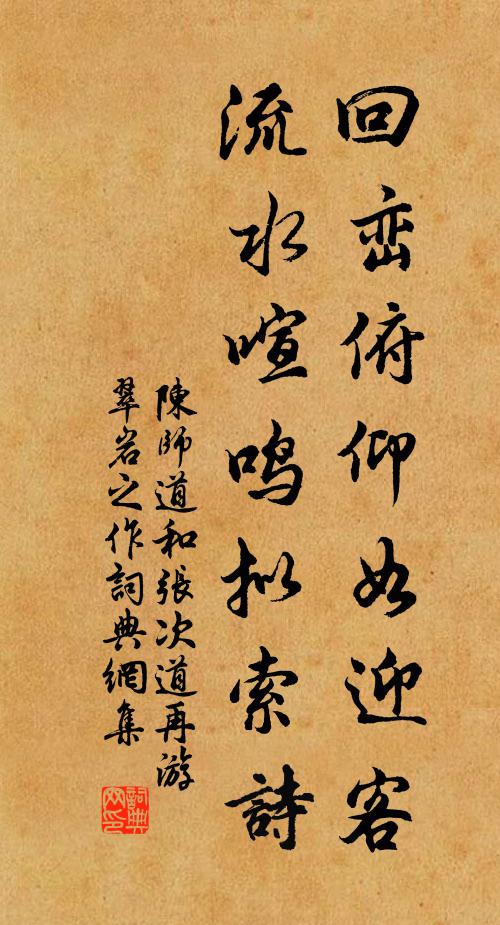 回峦俯仰如迎客
流水喧鸣拟索詩
陳師道和張次道再游
翠岩之作詞典網集
詞典網印